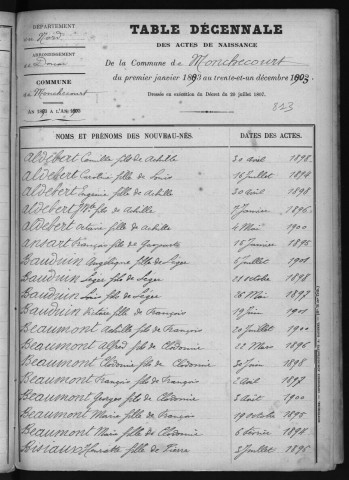 DÉPARTEMENT
du Nord
ARRONDISSEMENT
de Douai
COMMUNE
de Monchecourt
TABLE DÉCENNALE
DES ACTES DE NAISSANCE
De la Commune de Monchecourt
du premier janvier 1893 au trente-et-un décembre 1903.
Dressée en exécution du Décret du 20 juillet 1807.
NOMS ET PRÉNOMS DES NOUVEAU-NÉS. DATES DES ACTES.
Aldebert Camille fils de Achille 30 avril 1898
Aldebert Caroline fille de Louis 16 Juillet 1894
Aldebert Eugénie fille de Achille 30 avril 1898
Aldebert fils de Achille Janvier 1896
Aldebert Octavie fille de Achille 4 Mai 1900
Ansart François fils de 15 Janvier 1895
Bauduin Angélique fille de Léger 6 Juillet 1901
Bauduin Léger fils de Léger 21 octobre 1898
Bauduin Louis fils de Léger 26 Mai 1897
Bauduin Victoire fille de François 19 Juin 1901
Beaumont Achille fils de François 20 Juillet 1900
Beaumont Alfred fils de Clodomir 22 Mars 1896
Beaumont Clodomir fils de Clodomir 30 Juin 1898
Beaumont François fils de François 2 avril 1897
Beaumont Georges fils de Clodomir 3 août 1900
Beaumont Marie fille de François 19 octobre 1895
Beaumont Marie fille de Clodomir 6 février 1894
Bisiaux Henriette fille de Pierre 3 Juillet 1895